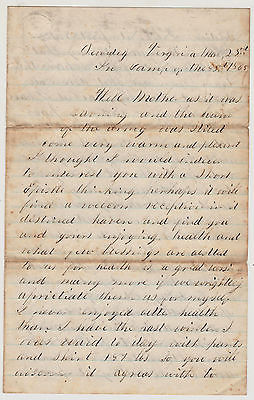 Virginia Mar 25th
In Camp of the 1865
Well as it was
and the
of the army was
some very warm and pleasant
I thought I would
to interest you with a Short
Epistle thinking perhaps it will
find a welcom reception in it
destined haven and find you
and yours enjoying health and
what few blessings are alotted
to us for health is a great
and many more if we rightly
aprietiate them as for myself
I never enjoyed better health
than I have the past winter I
was to day with pants
and shirt 187 lbs so you will
it agreas with